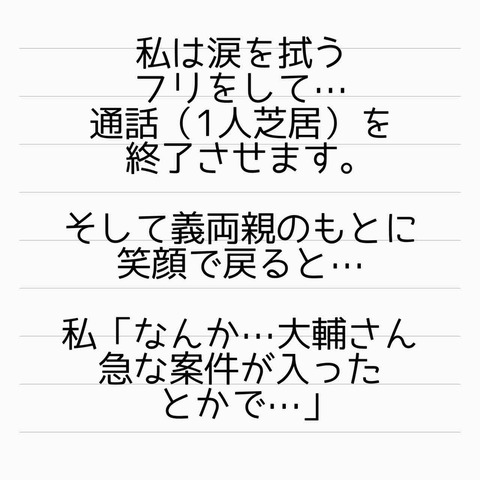 私は涙を拭う
フリをして…
通話（1人芝居）を
終了させます。
そして義両親のもとに
笑顔で戻ると…
私「なんか…大輔さん
急な案件が入った
とかで…」